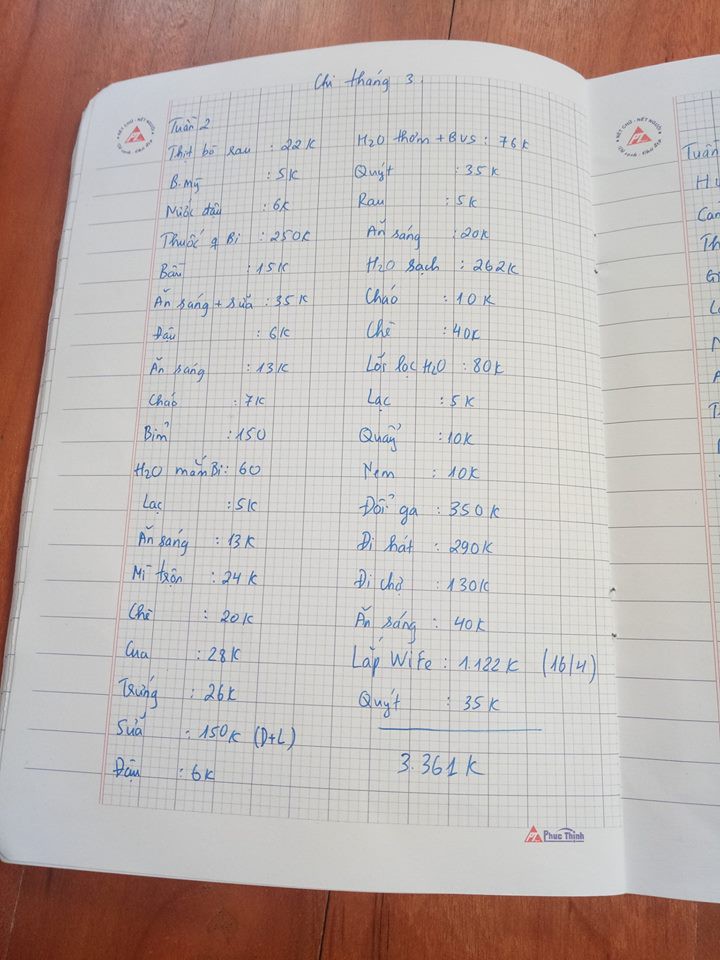 Chi tháng 3
Tuần 2
Thịt bò rau : 22K
B.mỳ : 5K
Nước đậu : 6K
Thuốc q Bi : 250K
Bầu : 15K
Ăn sáng + sữa : 35K
Đậu : 6K
Ăn sáng : 13K
Cháo : 7K
Bỉm : 150
H2O mắm Bi : 60
Lạc : 5K
Ăn sáng : 13K
Mì trộn : 24K
Chè : 20K
Cua : 28K
Trứng : 26K
Sữa : 150K (D+L)
Đậu : 6K
H2O thơm + BVS : 76K
Quýt : 35K
Rau : 5K
Ăn sáng : 20K
H2O sạch : 262K
Cháo : 10K
Chè : 40K
Lõi lọc H2O : 80K
Lạc : 5K
Quẩy : 10K
Nem : 10K
Đổi ga : 350K
Đi hát : 290K
Đi chợ : 130K
Ăn sáng : 40K
Lắp Wife : 1.122K (16/4)
Quýt : 35K
3.361K
Phuc Thinh
NÉT CHỮ - NẾT NGƯỜI
NÉT CHỮ - NẾT NGƯỜI
Tuần